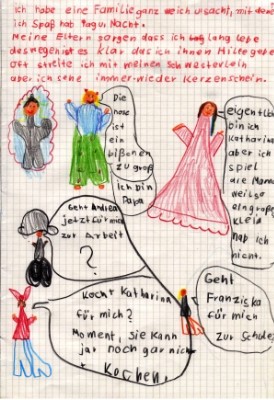 ich habe eine Familie ganz weich u sachj, mit dene
ich Spaß hab Tag u. Nacht.
Meine Eltern sorgen dass ich lang lebe
desnegen ist es klar das ich ihnen Hilfe gebe
Oft streite ich mit meinen Schwesterlein
aber ich sehe immer wieder Kerzenschein.
Die
hose
ist
ein
bißenen
zu groß
Ich bin
Papa
eigentl
bin ich
Katharina
aber ich
spiel
Mama
weil so
ein groß
Kleid
hab ich
nicht.
Geht Andrea
jetzt für mich
zur Arbeit
?
Kocht Katharina
für mich?
Moment, sie kann
jar noch gar nich
Kochen.
Geht
Franziska
für mich
zur Schule